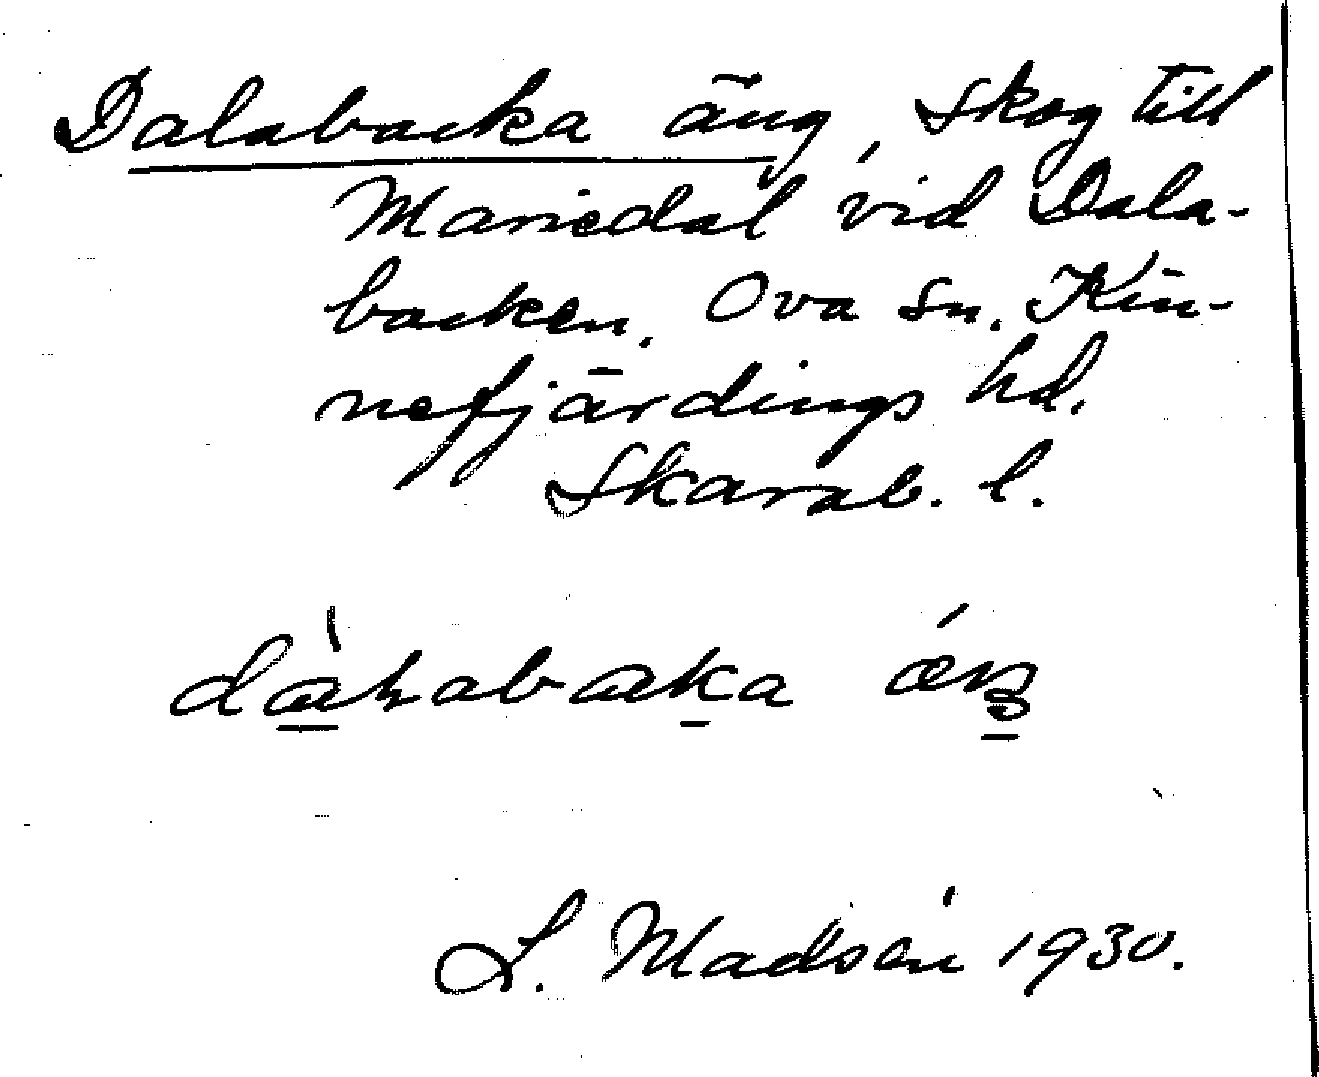 Dalabacka äng, Skog till
Mariedal vid Dala-
backen. Ova sn. Kin-
nefjärdings hd.
Skarab. l.
L. Madsén 1930.